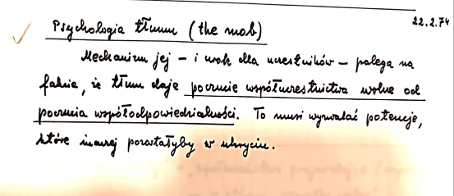 22.2.74
Psychologia tłumu (the mob)
Mechanizm jej – i urok dla uczestników – polega na
fakcie, iż tłum daje poczucie współuczestnictwa wolne od
poczucia współodpowiedzialności. To musi wyzwalać potencje,
które inaczej pozostałyby w ukryciu.